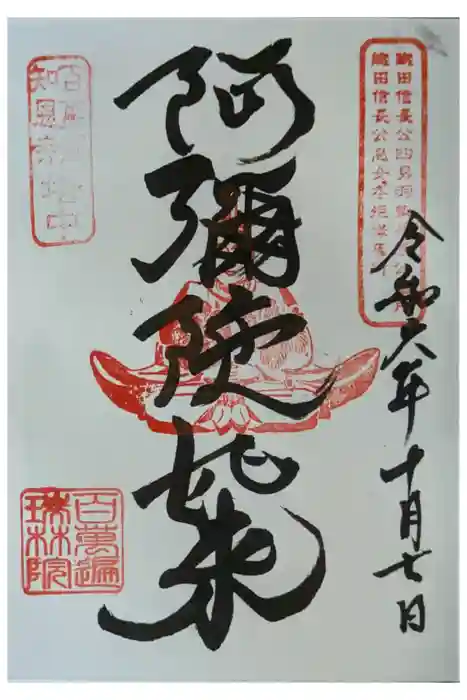 織田信長公四男羽
織田信長公息女
令和六年十月七日
阿彌陀如來
百萬遍
知恩寺塔中
百萬遍
瑞林院